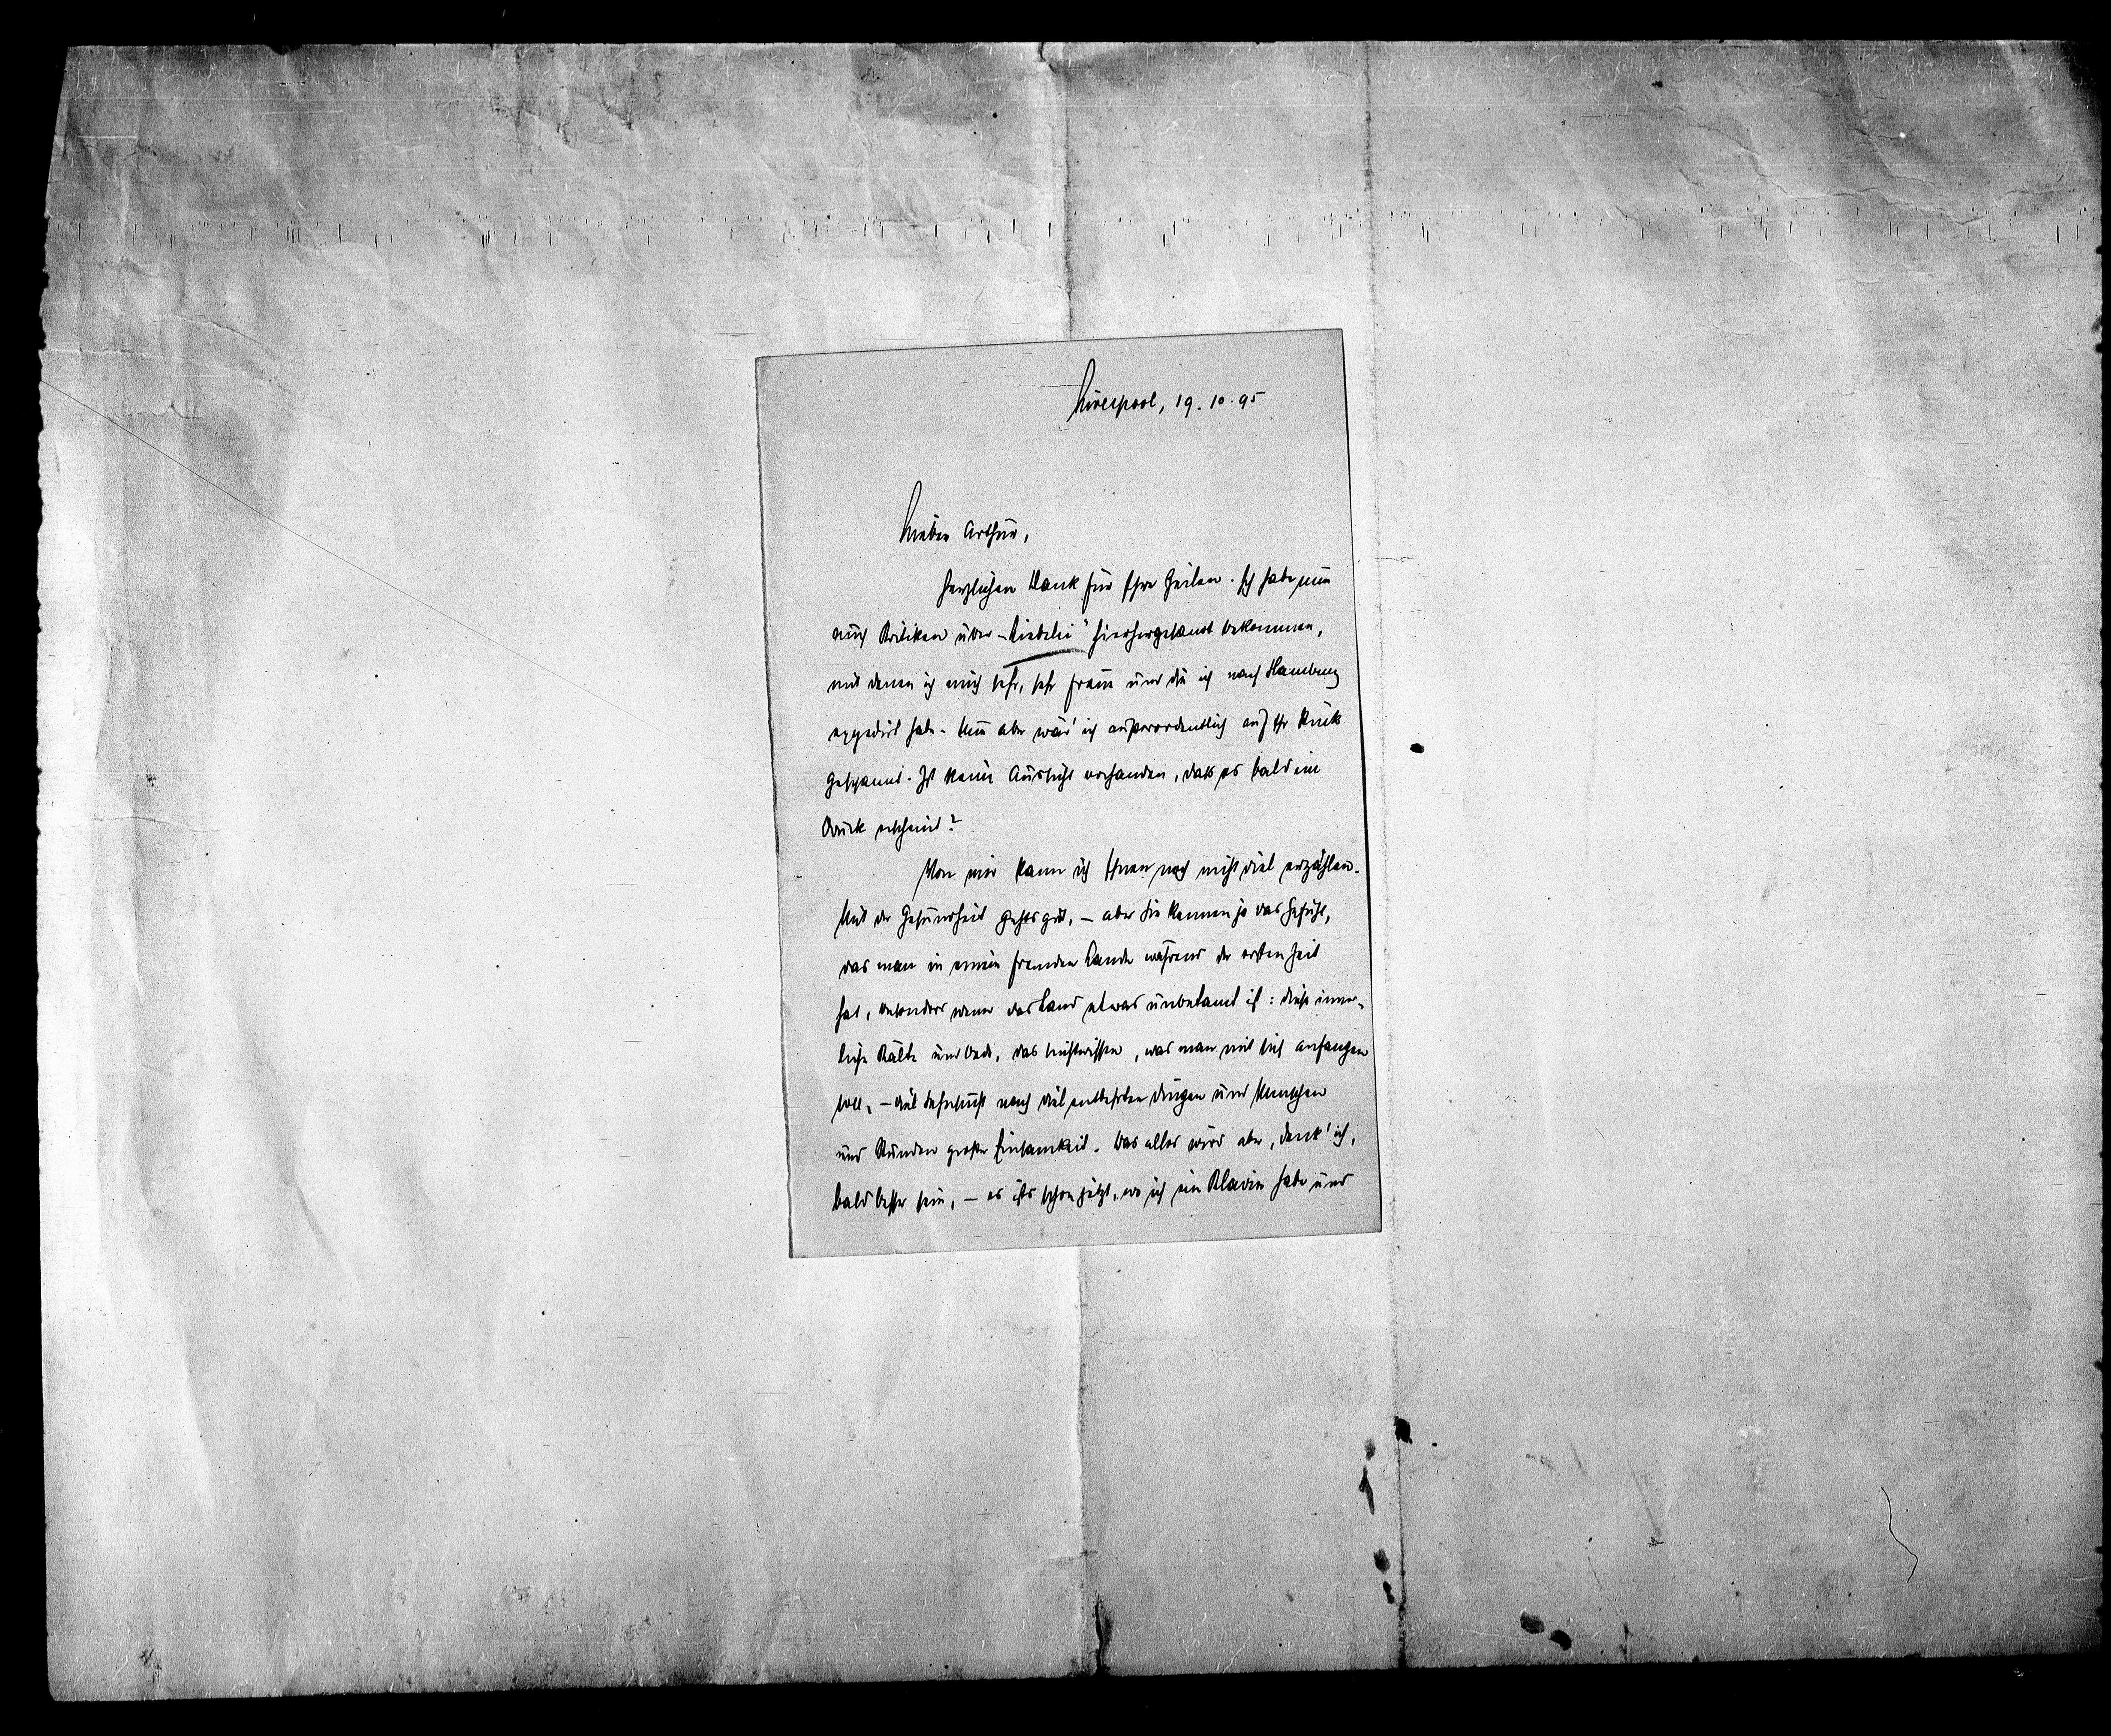 Liverpool, 19. 10. 95
Lieber Arthur,
herzlichen Dank für Ihre Zeilen. Ich habe nun
auch Kritiken über „Liebelei“ hierhergesandt bekommen,
mit denen ich mich sehr, sehr freue und die ich nach Hamburg
expedirt habe. Nun aber wär' ich außerordentlich auf Ihr Stück
gespannt. Ist keine Aussicht vorhanden, dass es bald im
Druck erscheint?
Von mir kann ich Ihnen noch nicht viel erzählen.
Mit der Gesundheit gehts gut, – aber Sie kennen ja das Gefühl,
das man in einem fremden Lande während der ersten Zeit
hat, besonders wenn das Land etwas unbekannt ist: diese inner-
liche Kälte und Oede, das Nichtwissen, was man mit sich anfangen
soll, – viel Sehnsucht nach viel entbehrten Dingen und Menschen
und Stunden großer Einsamkeit. Das alles wird aber, denk' ich,
bald besser sein, – es ists schon jetzt, wo ich ein Klavier habe und